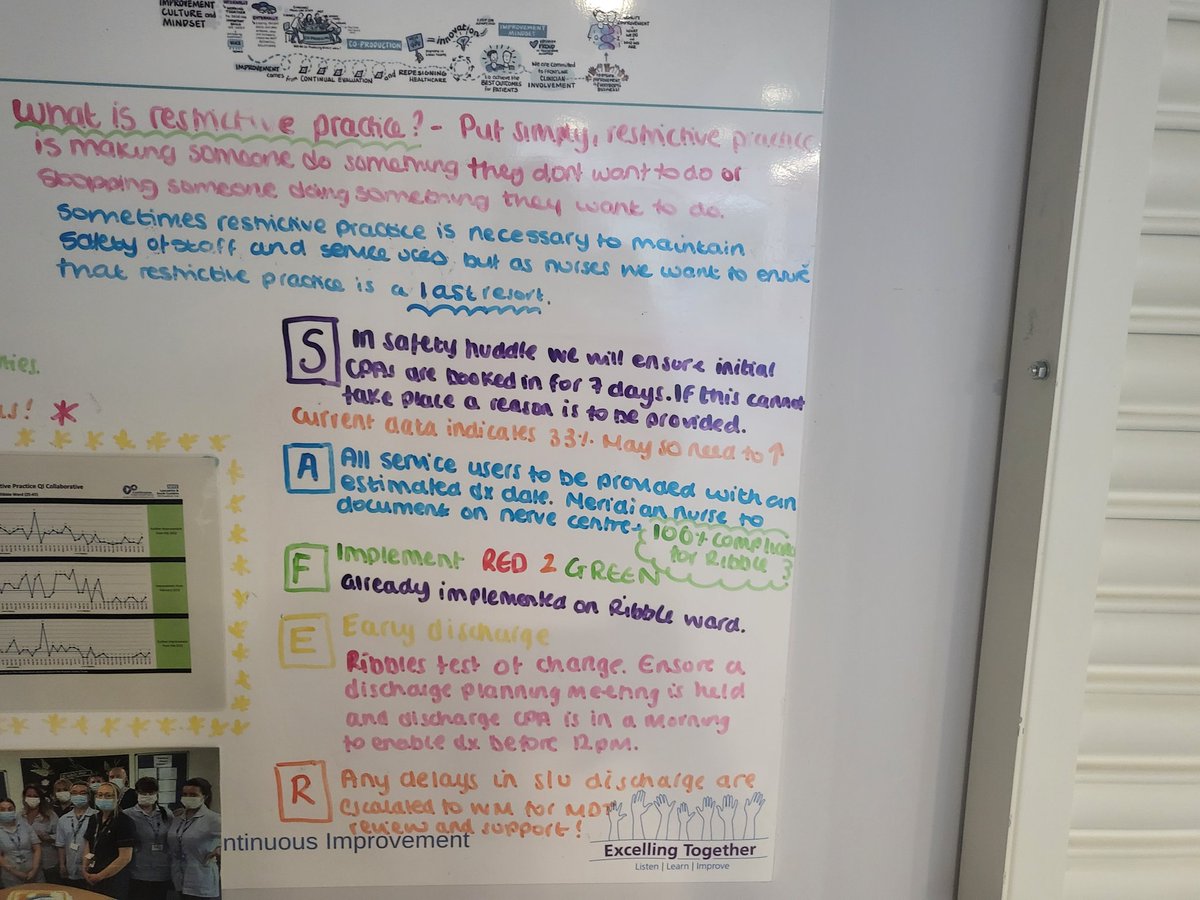 IMPROVEMENT
CULTURE and
MINDSET
CO-PRODUCTION
innovation
IMPROVEMENT
MINDSET
IMPROVEMENT
comes from CONTINUAL EVALUATION and
REDESIGNING
HEALTHCARE
to achieve the
BEST OUTCOMES
for PATIENTS
We are committed
to FRONTLINE
CLINICIAN
INVOLVEMENT
What is restrictive practice? - Put simply, restrictive practice
is making someone do something they dont want to do or
stopping someone doing something they want to do.
sometimes restrictive practice is necessary to maintain
safety of staff and service uses, but as nurses we want to ensure
that restrictive practice is a last resort.
S In safety huddle we will ensure initial
CPAs are booked in for 7 days. If this cannot
take place a reason is to be provided.
current data indicates 33% May so need to ↑
A All service users to be provided with an
estimated dx date. Meridian nurse to
document on nerve centre -
100% compliance
for Ribble
F Implement RED 2 GREEN
already implemented on Ribble ward.
E Early discharge
Ribbles test of change. Ensure a
discharge planning meeting is held
and discharge CPA is in a morning
to enable dx before 12pm.
R Any delays in s/u discharge are
escalated to WM for MDT
review and support!
ties.
us! *
tive Practice QI Collaborative
ntinuous Improvement
Excelling Together
Listen | Learn | Improve